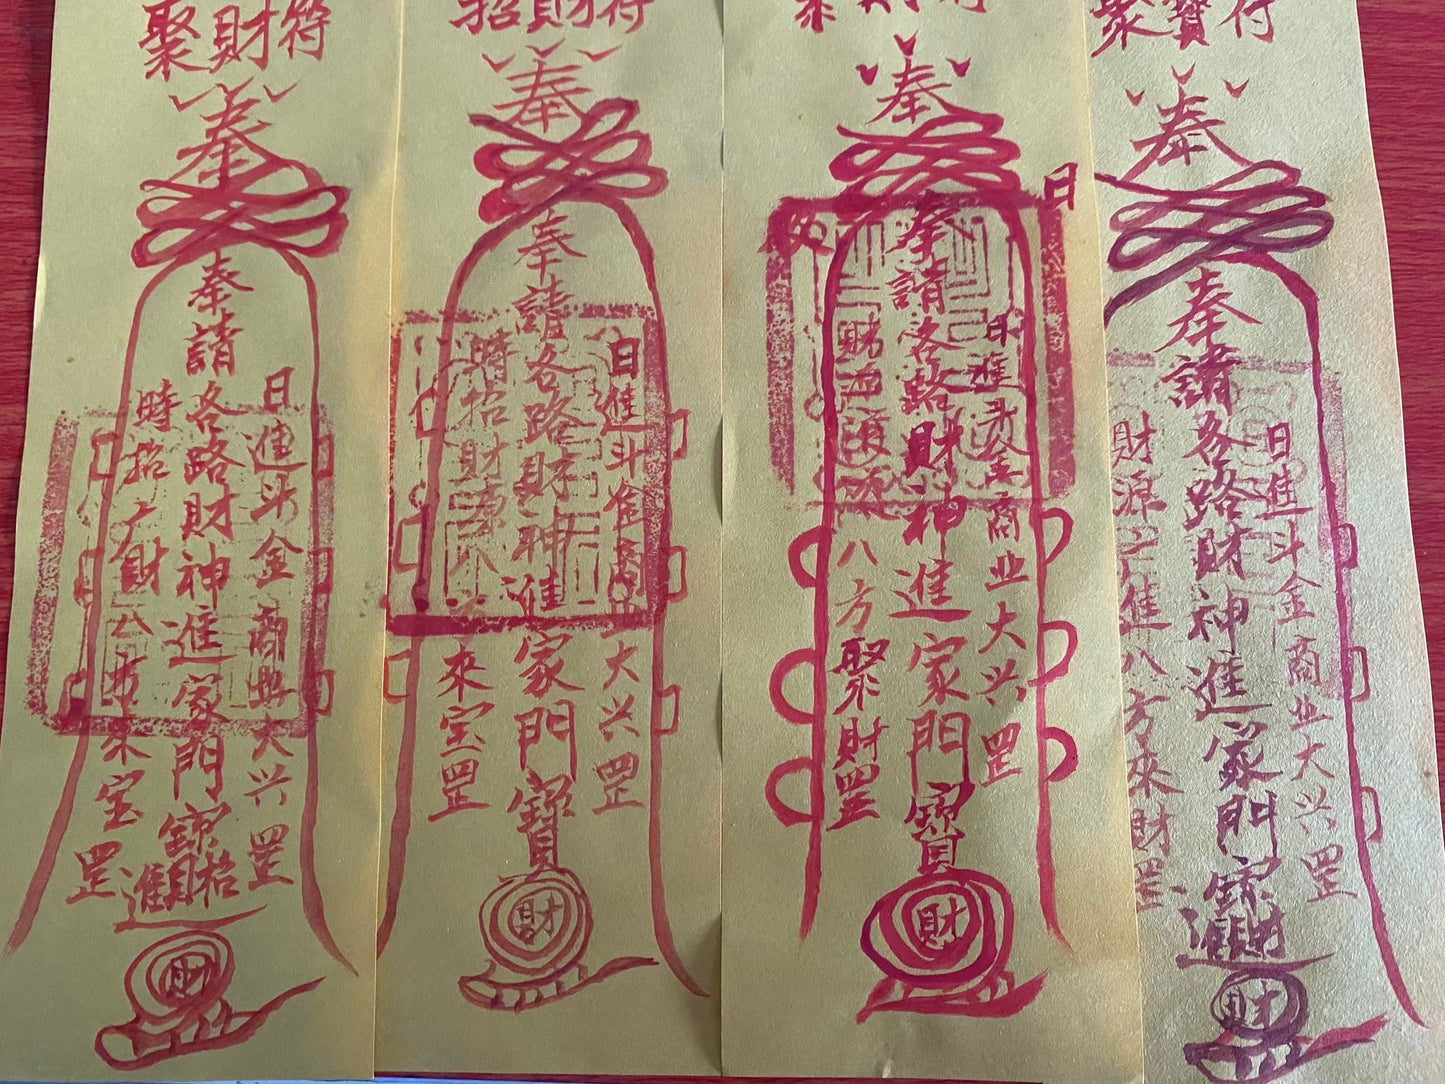 聚財符
奉
奉請各路財神進家門
日進斗金商业大兴罡
時招广財
來宝罡
財
招財符
奉
奉請各路財神進家門寶
日進斗金商业大兴罡
時招財源
來宝罡
財
財符
奉
日
奉請各路財神進家門寶
日進斗金商业大兴罡
財源
八方聚財罡
財
聚寶符
奉
奉請各路財神進家門
日進斗金商业大兴罡
財源之進八方來財罡
財